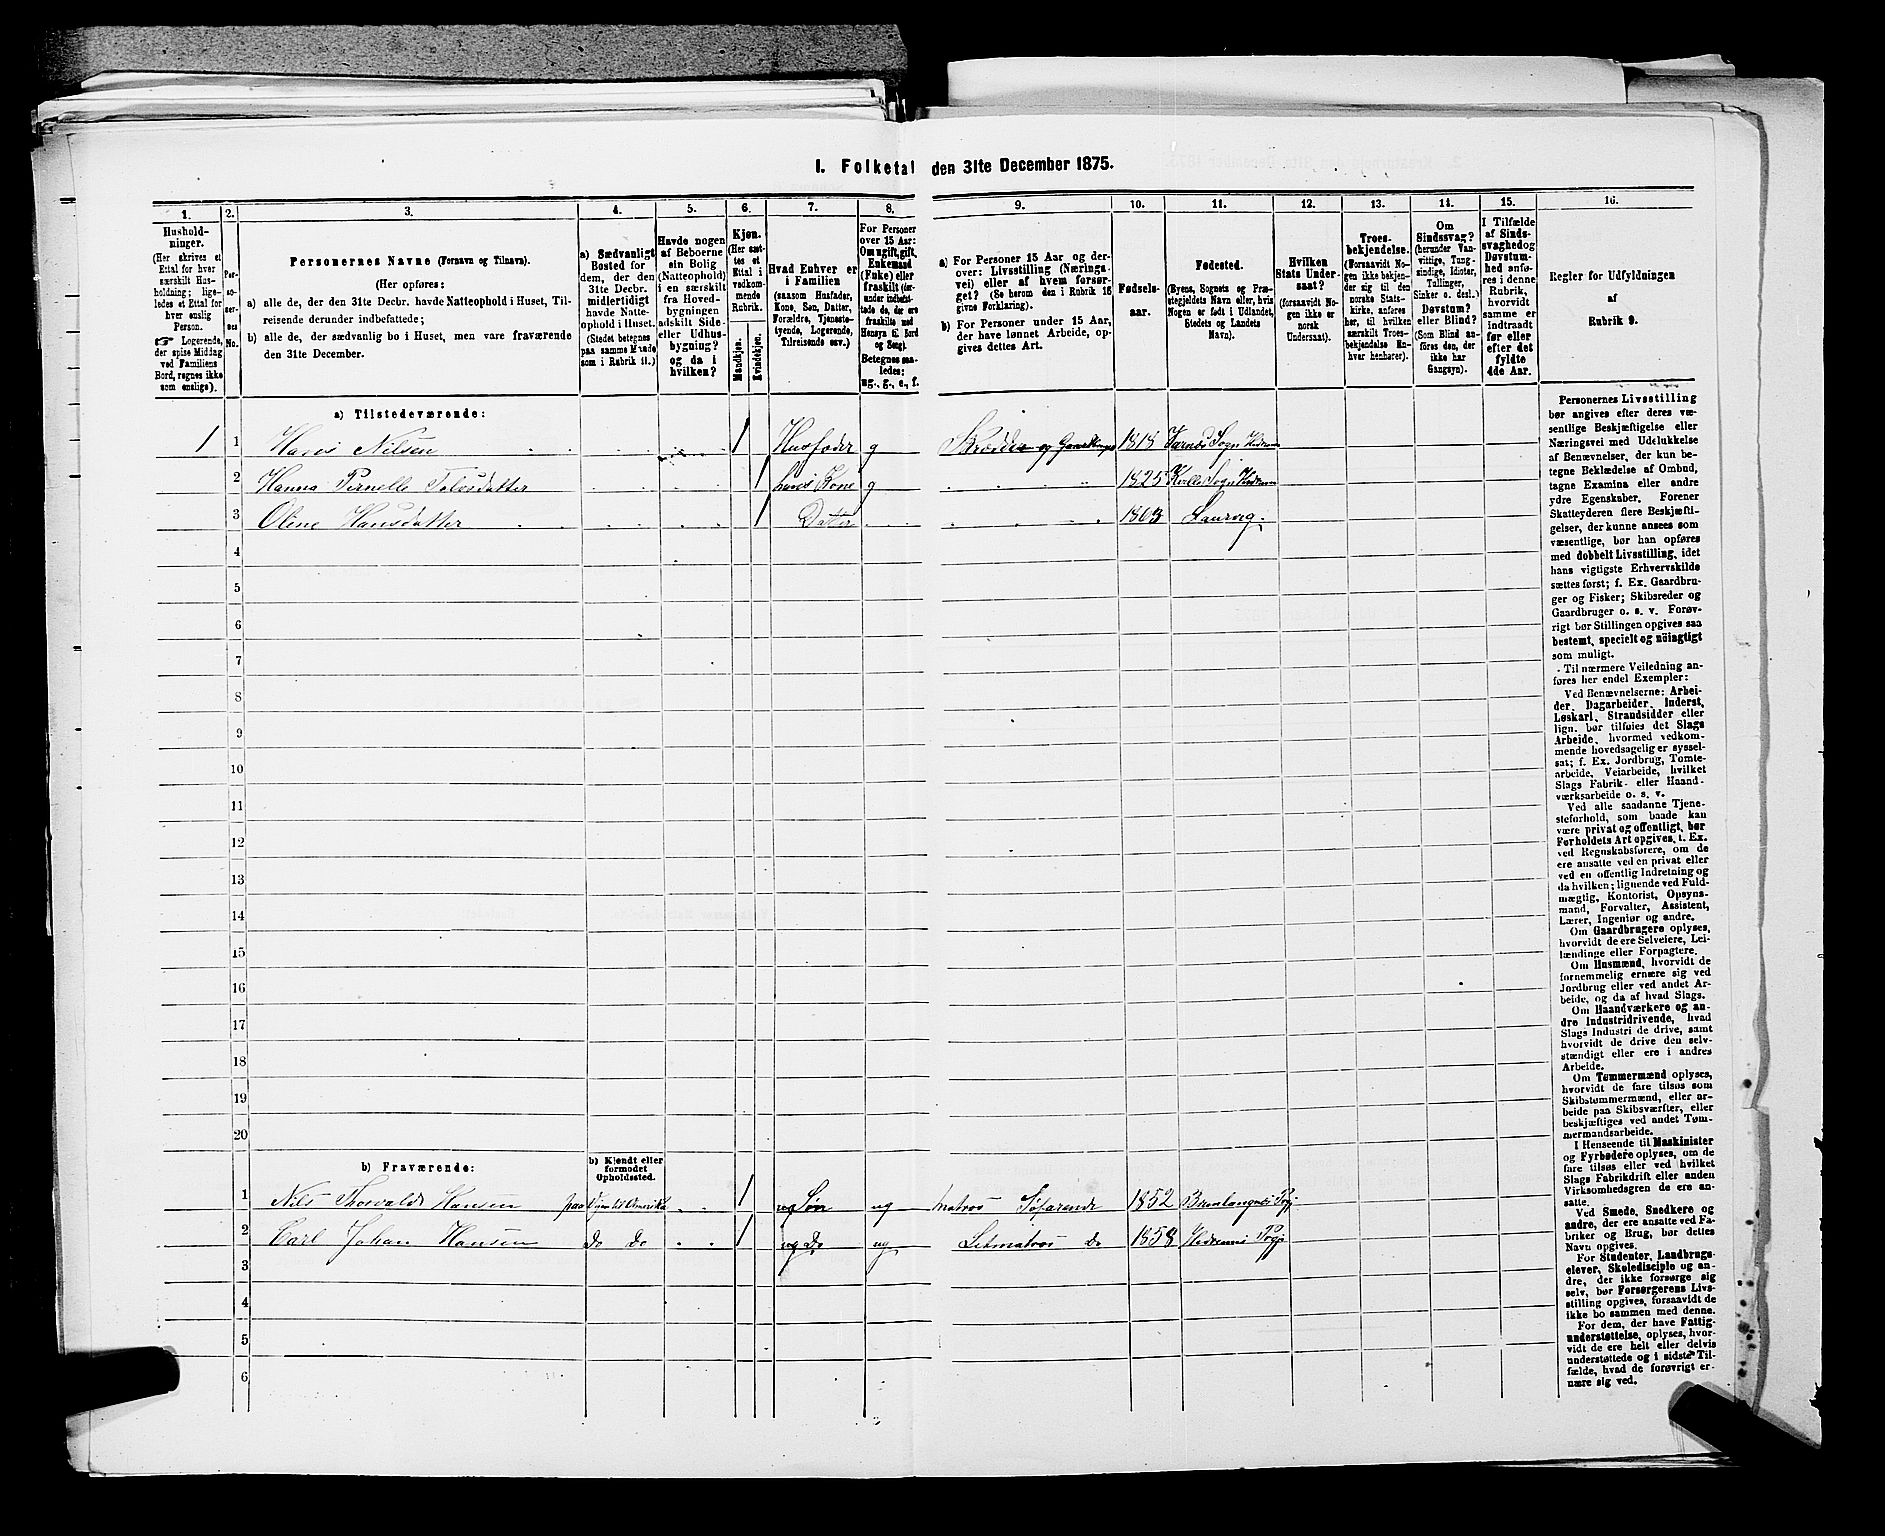 I. Folketal den 31te December 1875.
1.
2.
3.
4.
5.
6.
7.
8.
9.
10.
11.
12.
13.
14.
15.
16.
Hushold-
ninger.
(Her skrives et
Ettal for hver
særskilt Hus-
holdning; lige-
ledes et Ettal for
hver enslig
Person.
☞ Logerende,
der spise Middag
ved Familiens
Bord, regnes ikke
som enslige).
Per-
so-
ner-
nes
No.
Personernes Navne (Fornavn og Tilnavn).
(Her opføres:
a) alle de, der den 31te Decbr. havde Natteophold i Huset, Til-
reisende derunder indbefattede;
b) alle de, der sædvanlig bo i Huset, men vare fraværende
den 31te December.
a) Sædvanligt
Bosted for
dem, der den
31te Decbr.
midlertidigt
havde Natte-
ophold i Huset.
(Stedet betegnes
paa samme Maade
som i Rubrik 11.)
Havde nogen
af Beboerne
sin Bolig
(Natteophold)
i en særskilt
fra Hoved-
bygningen
adskilt Side-
eller Udhus-
bygning?
og da i
hvilken?
Kjøn.
(Her sæt-
tes et
Ettal i
vedkom-
mende
Rubrik.
Mandkjøn.
Kvindekjøn.
Hvad Enhver er
i Familien
(saasom Husfader,
Kone, Søn, Datter,
Forældre, Tjeneste-
tyende, Logerende,
Tilreisende osv.)
For Personer
over 15 Aar:
Om ugift, gift,
Enkemand
(Enke) eller
fraskilt (der-
under indbefat-
tede de, der ere
fraskilte med
Hensyn til Bord
og Seng).
Betegnes saa-
ledes:
ug., g., e., f.
a) For Personer 15 Aar og der-
over: Livsstilling (Nærings-
vei) eller af hvem forsør-
get? (Se herom den i Rubrik 16
givne Forklaring).
b) For Personer under 15 Aar,
der have lønnet Arbeide, op-
gives dettes Art.
Fødsels-
aar.
Fødested.
(Byens, Sognets og Præ-
stegjeldets Navn eller, hvis
Nogen er født i Udlandet,
Stedets og Landets
Navn).
Hvilken
Stats Under-
saat?
(forsaavidt No-
gen ikke er
norsk
Undersaat).
Troes-
bekjendelse.
(Forsaavidt No-
gen ikke bekjen-
der sig til den
norske Stats-
kirke, anføres
her, til hvilken
særskilt Troes-
bekjendelse En-
hver henhører).
Om
Sindssvag?
(herunder Van-
vittige, Tung-
sindige, Idioter,
Tullinger,
Sinker o. desl.)
Døvstum?
eller Blind?
(Som Blind an-
føres den, der
ikke har
Gangsyn).
I Tilfælde
af Sinds-
svaghed og
Døvstum-
hed anfø-
res i denne
Rubrik,
hvorvidt
samme er
indtraadt
før eller
efter det
fyldte
4de Aar.
Regler for Udfyldningen
af
Rubrik 9.
a) Tilstedeværende:
1 1 Hans Nilsen 1 Husfader g Skrædder og Gaardbruger 1818 Sogn Hedrum
2 Hanna Pernelle 1 hans Kone g 1825 Sogn Hedrum
3 Oline Hansdatter 1 Datter 1863 Laurvig
4
5
6
7
8
9
10
11
12
13
14
15
16
17
18
19
20
b) Fraværende:
b) Kjendt eller
formodet
Opholdssted.
1 Nils Thorvald Hansen paa til Amerika 1 Søn ug Matros Søfarende 1852 Brunlangnæs Pgj
2 Carl Johan Hansen Do Do 1 ug Do ug Letmatros Do 1858 Hedrums Pgj
3
4
5
6
Personernes Livsstilling
bør angives efter deres væ-
sentlige Beskjæftigelse eller
Næringsvei med Udelukkelse
af Benævnelser, der kun be-
tegne Beklædelse af Ombud,
tagne Examina eller andre
ydre Egenskaber. Forener
Skatteyderen flere Beskjæfti-
gelser, der kunne ansees som
væsentlige, bør han opføres
med dobbelt Livsstilling, idet
hans vigtigste Erhvervskilde
sættes først; f. Ex. Gaardbru-
ger og Fisker; Skibsreder og
Gaardbruger o. s. v. Forøv-
rigt bør Stillingen opgives saa
bestemt, specielt og nöiagtigt
som muligt.
- Til nærmere Veiledning an-
føres her endel Exempler:
Ved Benævnelserne: Arbei-
der, Dagarbeider, Inderst,
Løskarl, Strandsidder eller
lign. bør tilføies det Slags
Arbeide, hvormed vedkom-
mende hovedsagelig er syssel-
sat; f. Ex. Jordbrug, Tomte-
arbeide, Veiarbeide, hvilket
Slags Fabrik- eller Haand-
værksarbeide o. s. v.
Ved alle saadanne Tjene-
steforhold, som baade kan
være privat og offentligt, bør
Forholdets Art opgives, t. Ex.
ved Regnskabsførere, om de
ere ansatte ved en privat eller
ved en offentlig Indretning og
da hvilken; lignende ved Fuld-
mægtig, Kontorist, Opsyns-
mand, Forvalter, Assistent,
Lærer, Ingeniør og andre.
Om Gaardbrugere oplyses,
hvorvidt de ere Selveiere, Lei-
lændinge eller Forpagtere.
Om Husmænd, hvorvidt de
fornemmelig ernære sig ved
Jordbrug eller ved andet Ar-
beide, og da af hvad Slags.
Om Haandværkere og an-
dre Industridrivende, hvad
Slags Industri de drive, samt
hvorvidt de drive den selv-
stændigt eller ere i andres
Arbeide.
Om Tømmermænd oplyses,
hvorvidt de fare tilsøs som
Skibstømmermænd, eller ar-
beide paa Skibsværfter, eller
beskjæftiges ved andet Tøm-
mermandsarbeide.
I Henseende til Maskinister
og Fyrbødere oplyses, om de
fare tilsøs eller ved hvilket
Slags Fabrikdrift eller anden
Virksomhedsgren de ere an-
satte.
Ved Smede, Snedkere og
andre, der ere ansatte ved Fa-
briker og Brug, bør dettes
Navn opgives.
For Studenter, Landbrugs-
elever, Skoledisciple og an-
dre, der ikke forsørge sig
selv, bør Forsørgerens Livs-
stilling opgives, forsaavidt de
ikke bo sammen med denne.
For dem, der have Fattig-
understøttelse, oplyses, hvor-
vidt de ere helt eller delvis
understøttede og i sidste Til-
fælde, hvad de forøvrigt er-
nære sig ved.